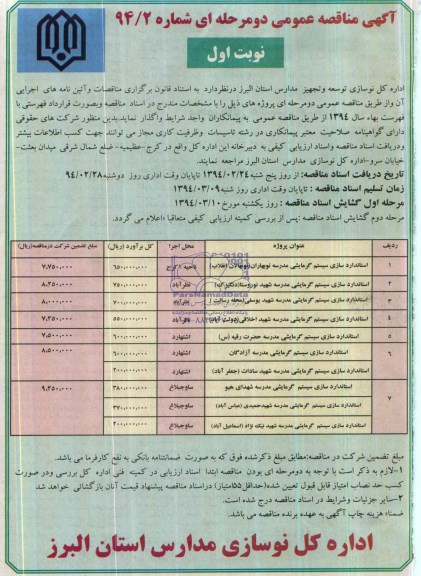 آگهی مناقصه عمومی دومرحله ای شماره ۹۴/۲
نوبت اول
اداره کل نوسازی توسعه وتجهیز مدارس استان البرز درنظردارد به استناد قانون برگزاری مناقصات وآئین نامه های اجرایی
آن واز طریق مناقصه عمومی دومرحله ای پروژه های ذیل را با مشخصات مندرج در اسناد مناقصه وبصورت قرارداد فهرستی با
فهرست بهاء سال ۱۳۹۴ از طریق مناقصه عمومی به پیمانکاران واجد شرایط واگذار نماید.بدین منظور شرکت های حقوقی
دارای گواهینامه صلاحیت معتبر پیمانکاری در رشته تاسیسات وظرفیت کاری مجاز می توانند جهت کسب اطلاعات بیشتر
ودریافت اسناد مناقصه واسناد ارزیابی کیفی به دبیرخانه این اداره کل واقع در کرج-عظیمیه- ضلع شمال شرقی میدان بعثت-
خیابان سرو-اداره کل نوسازی مدارس استان البرز مراجعه نمایند.
تاریخ دریافت اسناد مناقصه: از روز پنج شنبه ۱۳۹۴/۰۲/۲۴ تاپایان وقت اداری روز دوشنبه ۹۴/۰۲/۲۸
زمان تسلیم اسناد مناقصه : تاپایان وقت اداری روز شنبه ۱۳۹۴/۰۳/۰۹
مرحله اول گشایش اسناد مناقصه : روز یکشنبه مورخ ۱۳۹۴/۰۳/۱۰
مرحله دوم گشایش اسناد مناقصه :پس از بررسی کمیته ارزیابی کیفی متعاقبا اعلام می گردد.
ردیف عنوان پروژه محل اجرا کل برآورد (ریال) مبلغ تضمین شرکت درمناقصه(ریال)
۱ استاندارد سازی سیستم گرمایشی مدرسه نوبهاران ناحیه کرج ۶۵۰،۰۰۰،۰۰۰ ۷،۷۵۰،۰۰۰
۲ استاندارد سازی سیستم گرمایشی مدرسه شهید نظرآباد ۷۵۰،۰۰۰،۰۰۰ ۸،۲۵۰،۰۰۰
۳ استاندارد سازی سیستم گرمایشی مدرسه شهید نظرآباد ۷۰۰،۰۰۰،۰۰۰ ۸،۰۰۰،۰۰۰
۴ استاندارد سازی سیستم گرمایشی مدرسه شهید اخلاقی نظرآباد ۵۵۰ ۷،۲۵۰،۰۰۰
۵ استاندارد سازی سیستم گرمایشی مدرسه حضرت رقیه (س) اشتهارد ۶۰۰،۰۰۰،۰۰۰ ۷،۵۰۰،۰۰۰
۶ استاندارد سازی سیستم گرمایشی مدرسه آزادگان اشتهارد ۶۰۰،۰۰۰،۰۰۰ ۸،۵۰۰،۰۰۰
استاندارد سازی سیستم گرمایشی مدرسه شهید سادات (جعفر آباد) اشتهارد
۷ استاندارد سازی سیستم گرمایشی مدرسه شهدای هیو ساوجبلاغ ۳۸۰،۰۰۰،۰۰۰ ۹،۲۵۰،۰۰۰
استاندارد سازی سیستم گرمایشی مدرسه شهیدحمیدی (عباس آباد) ساوجبلاغ
استاندارد سازی سیستم گرمایشی مدرسه شهید نیک نژاد (اسماعیل آباد) ساوجبلاغ ۲۰۰،۰۰۰،۰۰۰
ParsNamadData
مبلغ تضمین شرکت در مناقصه:مطابق مبلغ ذکرشده فوق که به صورت ضمانتنامه بانکی به نفع کارفرما می باشد.
۱-لازم به ذکر است با توجه به دومرحله ای بودن مناقصه ابتدا اسناد ارزیابی در کمیته فنی اداره کل بررسی ودر صورت
کسب حد نصاب امتیاز قابل قبول تعیین شده(حداقل۵۵امتیاز) دراسناد مناقصه پیشنهاد قیمت آنان بازگشائی خواهد شد
۲-سایر جزئیات وشرایط در اسناد مناقصه درج شده است.
ضمنا هزینه چاپ آگهی به عهده برنده مناقصه می باشد.
اداره کل نوسازی مدارس استان البرز